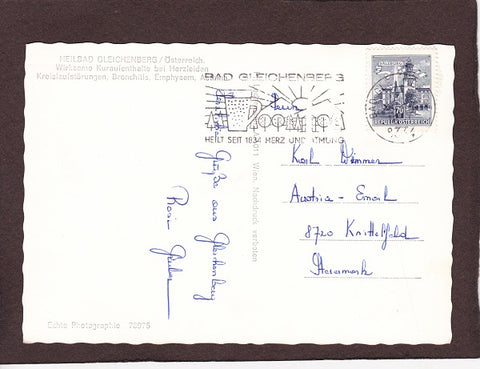 HEILBAD GLEICHENBERG / Österreich.
Wirksame Kuraufenthalte bei Herzleiden
Kreislaufstörungen, Bronchitis, Emphysem, Asthma
BAD GLEICHENBERG
HEILT SEIT 1834 HERZ UND ATMUNG
SALZBURG
70
REPUBLIK ÖSTERREICH
Herrn
Karl Wimmer
Austria - Email
8720 Knittelfeld
Steiermark
Grüße aus Gleichenberg
Wien. Nachdruck verboten
Echte Photographie